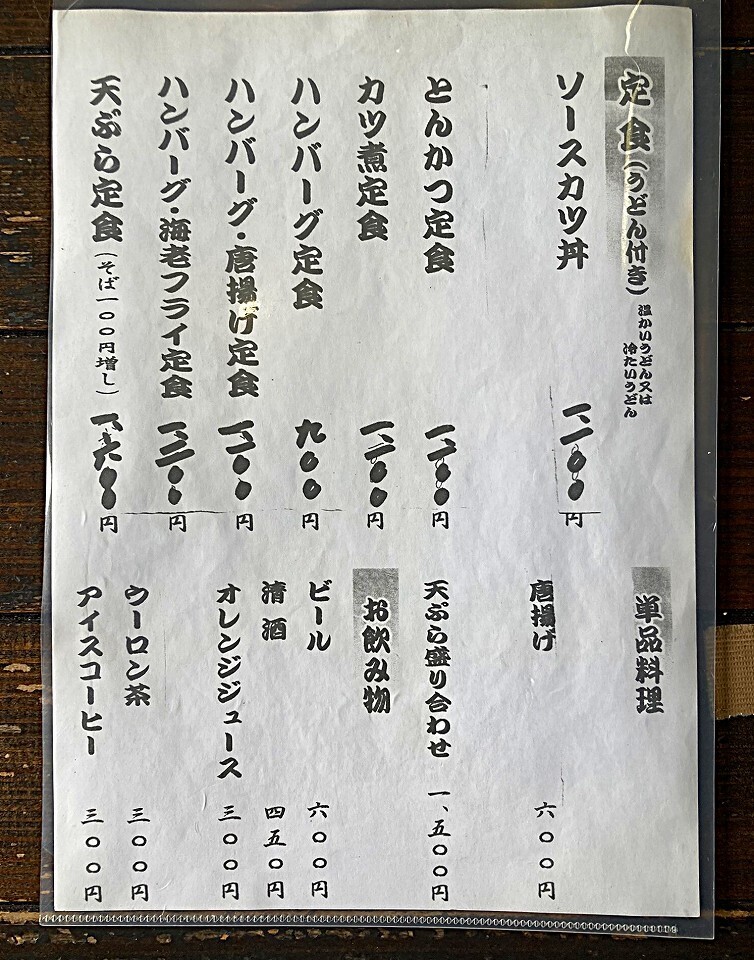 定食(うどん付き)
温かいうどん又は
冷たいうどん
ソースカツ丼 一、二〇〇円
とんかつ定食 円
カツ煮定食 一、二〇〇円
ハンバーグ定食 九〇〇円
ハンバーグ・唐揚げ定食 円
ハンバーグ・海老フライ定食 円
天ぷら定食(そば一〇〇円増し) 一、六〇〇円
単品料理
唐揚げ 六〇〇円
天ぷら盛り合わせ 一、五〇〇円
お飲み物
ビール 六〇〇円
清酒 四五〇円
オレンジジュース 三〇〇円
ウーロン茶 三〇〇円
アイスコーヒー 三〇〇円